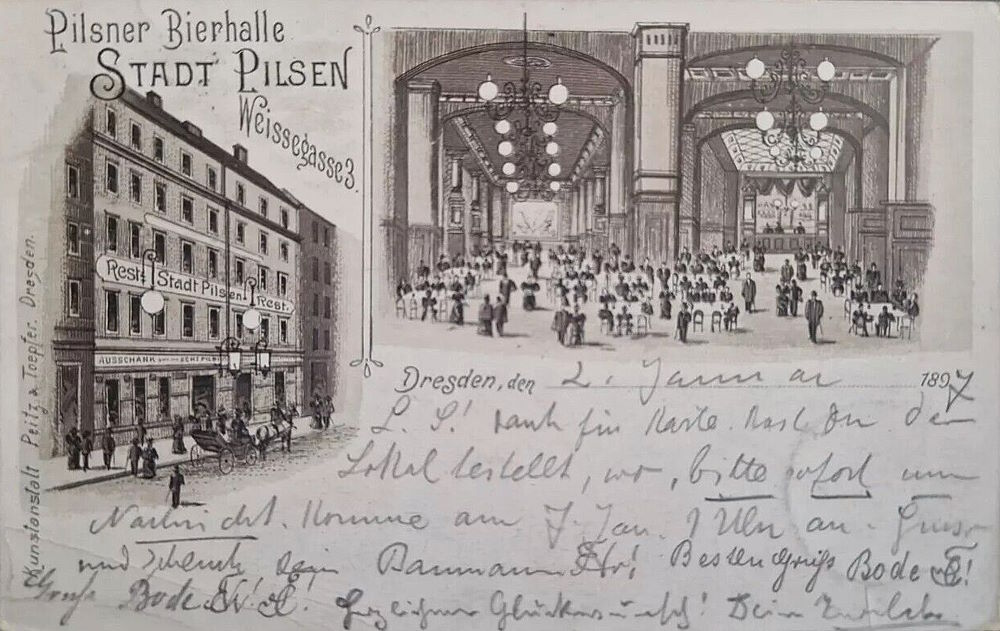 Pilsner Bierhalle
STADT PILSEN
Weissegasse 3.
Rest. Stadt Pilsen Rest.
AUSSCHANK ECHT PILS
Kunstanstalt Peitz & Toepfer. Dresden.
Dresden, den 2. Januar 1897
L. S.! Dank für Karte. Hast Du den
Lokal bestellt, wo, bitte sofort um
Nachricht. Komme am 7. Jan. 1 Uhr an. Gruss
und Baumann Besten Gruß Bode
Gruß Bode Glückwunsch! Dein